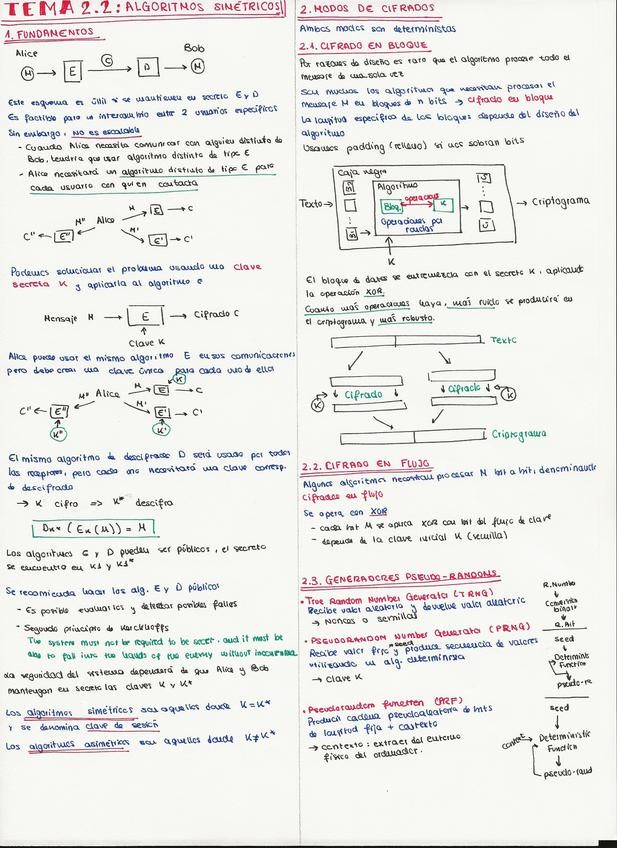 TEMA 2.2: ALGORITMOS SIMÉTRICOS
1. FUNDAMENTOS
Alice
Bob
M → E → C → D → M
Este esquema es útil si se mantienen en secreto E y D
Es factible para un intercambio entre 2 usuarios específicos
Sin embargo, NO es escalable
- Cuando Alice necesita comunicar con alguien distinto de
Bob, tendría que usar algoritmo distinto de tipo E
- Alice necesitará un algoritmo distinto de tipo E para
cada usuario con quien contacta
M → E → C
C" ← E" ← M" Alice
M' → E' → C'
Podemos solucionar el problema usando una clave
secreta K y aplicarla al algoritmo e
Mensaje M → E → Cifrado C
Clave K
Alice puede usar el mismo algoritmo E en sus comunicaciones
pero debe crear una clave única para cada uno de ellos
K
M → E → C
C" ← E" ← M" Alice
M' → E' → C'
K" K'
El mismo algoritmo de descifrado D será usado por todos
los receptores, pero cada uno necesitará una clave corresp.
de descifrado
→ K cifra => K* descifra
DK* (EK(M)) = M
Los algoritmos E y D pueden ser públicos, el secreto
se encuentra en K1 y K1*
Se recomienda hacer los alg. E y D públicos
- Es posible evaluarlos y detectar posibles fallos
- Segundo principio de Kerckhoffs
The system must not be required to be secret, and it must be
able to fall into the hands of the enemy without
La seguridad del sistema dependerá de que Alice y Bob
mantengan en secreto las claves K y K*
Los algoritmos simétricos son aquellos donde K=K*
y se denomina clave de sesión
Los algoritmos asimétricos son aquellos donde K≠K*
2. MODOS DE CIFRADOS
Ambos modos son deterministas
2.1. CIFRADO EN BLOQUE
Por razones de diseño es raro que el algoritmo procese todo el
mensaje de una sola vez
Son muchos los algoritmos que necesitan procesar el
mensaje M en bloques de n bits → cifrado en bloque
La longitud específica de los bloques depende del diseño del
algoritmo
Usamos padding (relleno) si nos sobran bits
Caja negra
Algoritmo
Texto → Bloq. operaciones K → Criptograma
Operaciones por
rondas
K
El bloque de datos se entremezcla con el secreto K, aplicando
la operación XOR.
Cuanto más operaciones haya, más ruido se producirá en
el criptograma y más robusto.
Texto
K Cifrado Cifrado K
Criptograma
2.2. CIFRADO EN FLUJO
Algunos algoritmos necesitan procesar M bit a bit, denominados
cifrados en flujo
Se opera con XOR
- cada bit M se aplica XOR con bit del flujo de clave
- depende de la clave inicial K (semilla)
2.3. GENERADORES PSEUDO-RANDOMS
• True Random Number Generato (TRNG)
Recibe valor aleatorio y devuelve valor aleatorio
→ Nonces o semillas
R. Numbo
a. bit
• PSEUDORANDOM Number Generato (PRNG)
seed
Recibe valor fijo y produce secuencia de valores
utilizando un alg. determinista
→ clave K
seed
Determinis
Function
pseudo-ra
• Pseudorandom function (PRF)
Produce cadena pseudoaleatoria de bits
de longitud fija + contexto
→ contexto: extraer del entorno
físico del ordenador.
seed
context → Deterministic
Function
pseudo-rand